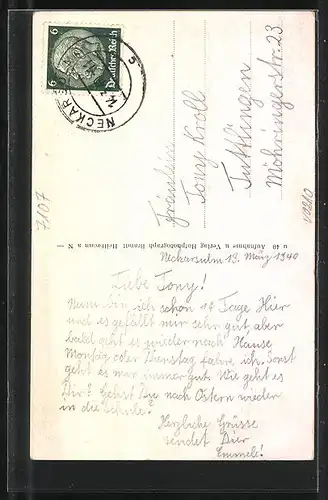 6 Deutsches Reich 6
NECKARSULM
Fräulein
Tony Kroll
Tuttlingen
Möhringerstr. 23
7107
u 40 Aufnahme u. Verlag Hofphotograph Brandt Heilbronn a N
Neckarsulm 13. März 1940
Liebe Tony!
Nun bin ich schon 14 Tage Hier
und es gefällt mir sehr gut, aber
bald geht es wieder nach Hause
Montag oder Dienstag fahre ich. Sonst
geht es mir immer gut. Wie geht es
Dir? Gehst Du nach Ostern wieder
in die Schule?
Herzliche Grüsse
sendet Dier
Emmele!